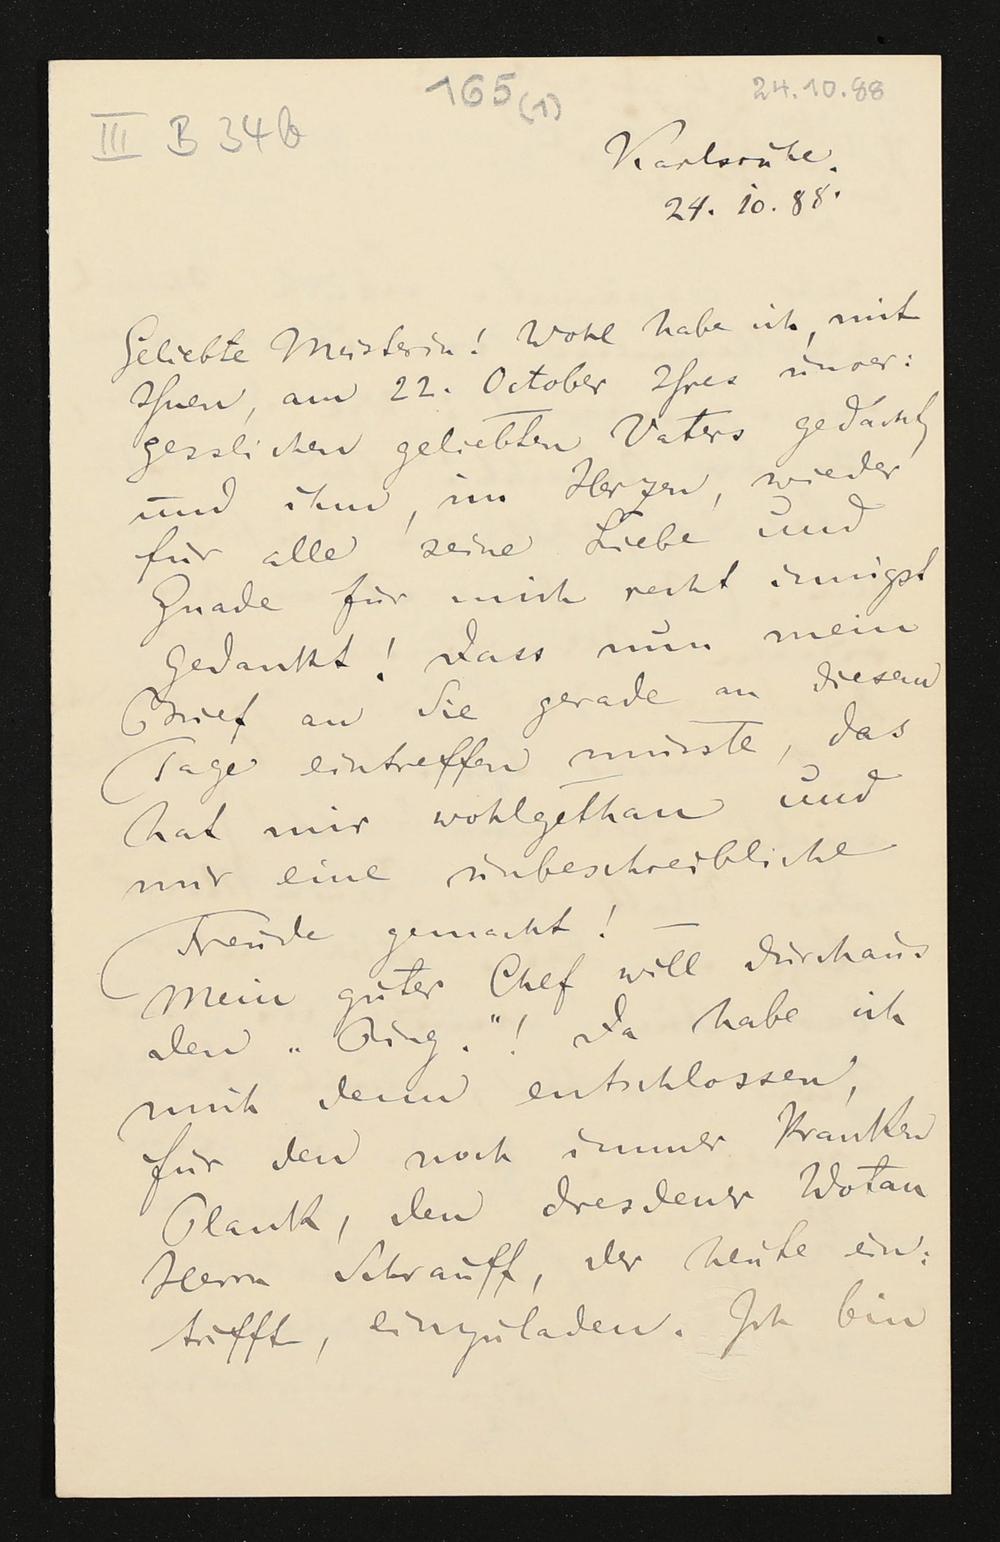 165 (1)
24.10.88
III B 34b
Karlsruhe.
24. 10. 88.
Geliebte Meisterin! Wohl habe ich, mit
Ihnen, am 22. October Ihres unver:
gesslichen geliebten Vaters gedacht,
und ihm, im Herzen, wieder
für alle seine Liebe und
Gnade für mich recht innigst
gedankt! Dass nun mein
Brief an Sie gerade an diesem
Tage eintreffen musste, das
hat mir wohlgethan und
mir eine unbeschreibliche
Freude gemacht! —
Mein guter Chef will durchaus
den „Ring."! Da habe ich
mich denn entschlossen,
für den noch immer kranken
Plank, den dresdener Wotan
Herrn Schrauff, der heute ein:
trifft, einzuladen. Ich bin